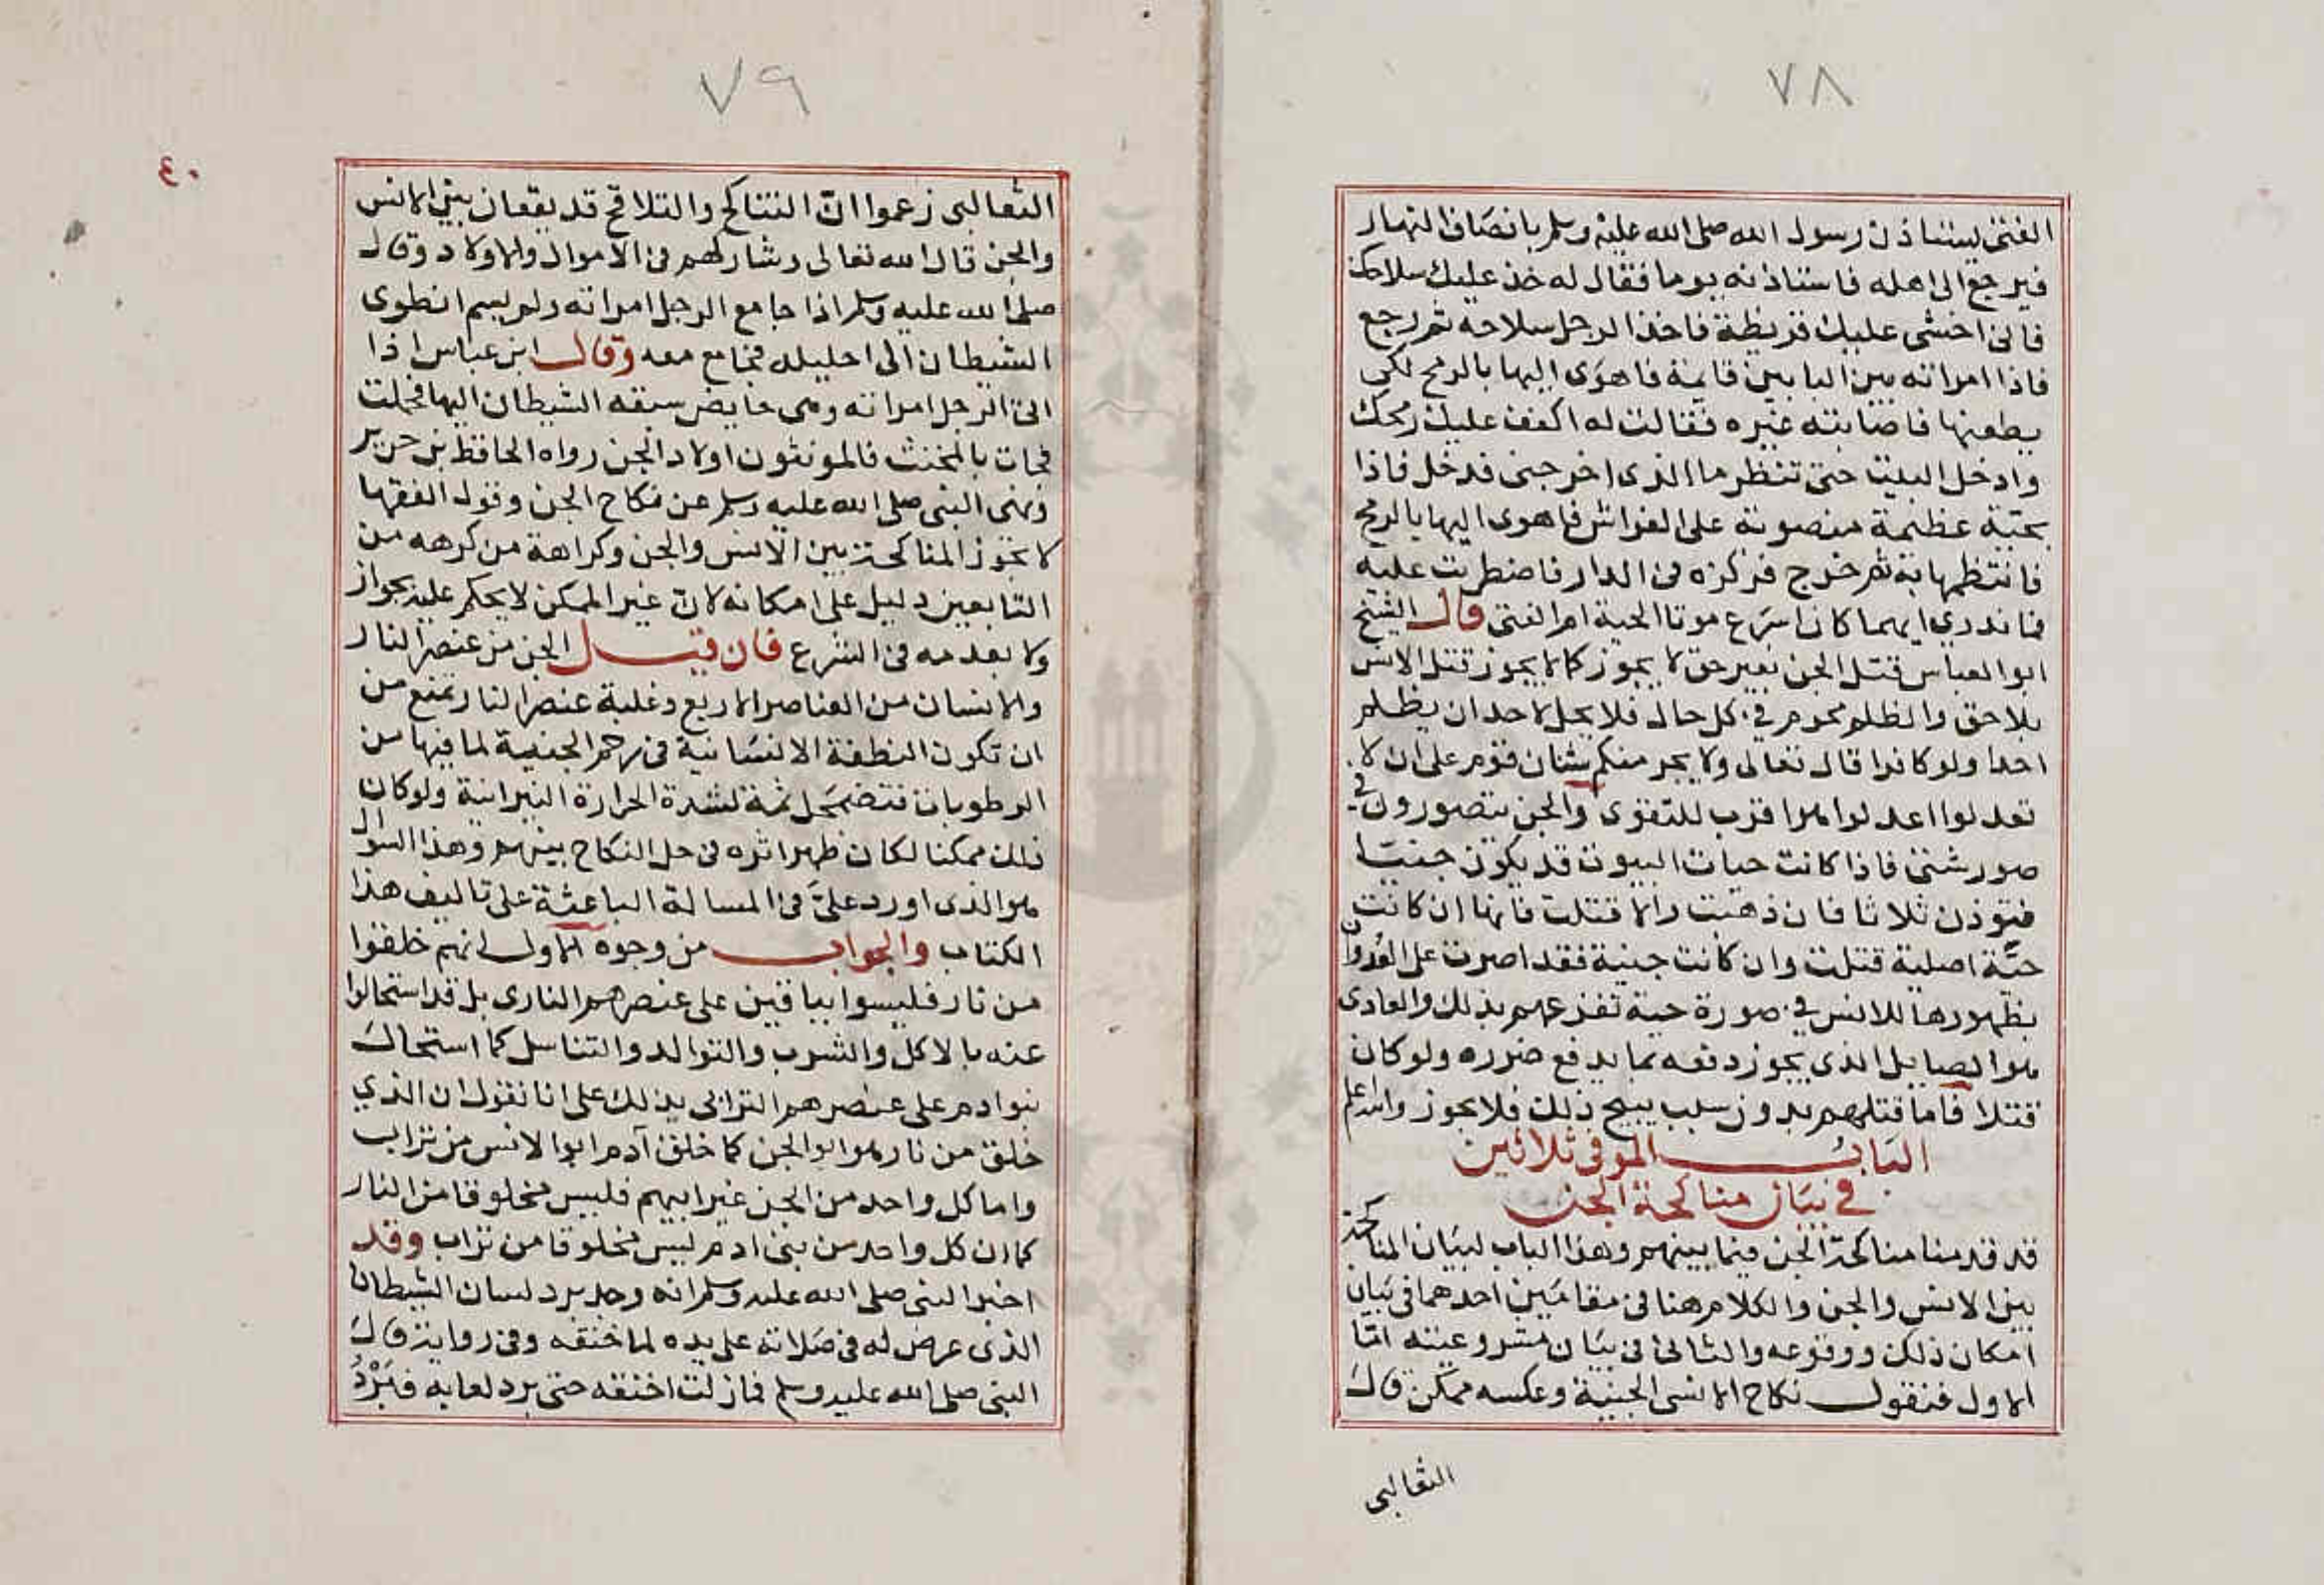 ٧٨
الفتى يستاذن رسول الله صلى الله عليه وسلم بانصاف النهار
فيرجع الى اهله فاستاذنه يوما فقال له خذ عليك سلاحك
فانى اخشى عليك قريظة فاخذ الرجل سلاحه ثم رجع
فاذا امراته بين البابين قايمة فاهوى اليها بالرمح لكى
يطعنها فاصابته غيره فقالت له اكفف عليك رمحك
وادخل البيت حتى تنظر ما الذى اخرجنى فدخل فاذا
بحية عظيمة منصوبة على الفراش فاهوى اليها بالرمح
فانتظمها به ثم خرج فركزه فى الدار فاضطربت عليه
فما ندري ايهما كان اسرع موتا الحية ام الفتى قال الشيخ
ابو العباس قتل الجن بغير حق لا يجوز كما لا يجوز قتل الانس
بلا حق والظلم محرم في كل حال فلا يحل لاحد ان يظلم
احدا ولو كافرا قال تعالى ولا يجرمنكم شنان قوم على ان لا
تعدلوا اعدلوا هو اقرب للتقوى والجن يتصورون في
صور شتى فاذا كانت حيات البيوت قد يكون جنيا
فتوذن ثلاثا فان ذهبت والا قتلت فانها ان كانت
حية اصلية قتلت وان كانت جنية فقد اصرت على العدوان
بظهورها للانس في صورة حية تفزعهم بذلك والعادى
هو الصايل الذى يجوز دفعه بما يدفع ضرره ولو كان
قتلا فاما قتلهم بدون سبب يبيح ذلك فلا يجوز والله اعلم
الباب الموفى ثلاثين
في بيان مناكحة الجن
قد قدمنا مناكحة الجن فيما بينهم وهذا الباب لبيان المناكحة
بين الانس والجن والكلام هنا فى مقامين احدهما فى بيان
امكان ذلك ووقوعه والثانى فى بيان مشروعيته اما
الاول فنقول نكاح الانسى الجنية وعكسه ممكن قال
الثعالبى
٧٩
٤٠
الثعالبى زعموا ان التناكح والتلاقح قد يقعان بين الانس
والجن قال الله تعالى وشاركهم فى الاموال والاولاد وقال
صلى الله عليه وسلم اذا جامع الرجل امراته ولم يسم انطوى
الشيطان الى احليله فجامع معه وقال ابن عباس اذا
اتى الرجل امراته وهى حايض سبقه الشيطان اليها فحملت
فجات بالمخنث فالمونثون اولاد الجن رواه الحافظ بن جرير
ونهى النبى صلى الله عليه وسلم عن نكاح الجن وقول الفقها
لا تجوز المناكحة بين الانس والجن وكراهة من كرهه من
التابعين دليل على امكانه لان غير الممكن لا يحكم عليه بجواز
ولا بعدمه فى الشرع فان قيل الجن من عنصر النار
والانسان من العناصر الاربع وغلبة عنصر النار تمنع من
ان تكون النطفة الانسانية فى رحم الجنية لما فيها من
الرطوبات فتضمحل ثمة لشدة الحرارة النيرانية ولو كان
ذلك ممكنا لكان ظهر اثره فى حل النكاح بينهم وهذا السوال
هو الذى اورد على فى المسالة الباعثة على تاليف هذا
الكتاب والجواب من وجوه الاول انهم خلقوا
من نار فليسوا بباقين على عنصرهم النارى بل قد استحالوا
عنه بالاكل والشرب والتوالد والتناسل كما استحال
بنوادم على عنصرهم الترابى بذلك على انا نقول ان الذي
خلق من نار هو ابو الجن كما خلق آدم ابو الانس من تراب
واما كل واحد من الجن غير ابيهم فليس مخلوقا من النار
كما ان كل واحد من بنى ادم ليس مخلوقا من تراب وقد
اخبر النبى صلى الله عليه وسلم انه وجد برد لسان الشيطان
الذى عرض له فى صلاته على يده لما خنقه وفى رواية قال
النبى صلى الله عليه وسلم فما زلت اخنقه حتى برد لعابه فبرد